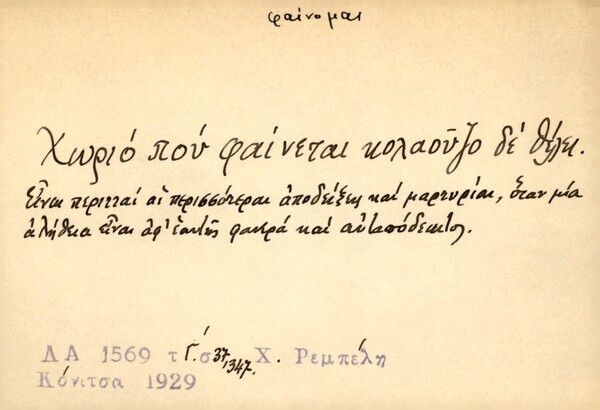 φαίνομαι
Χωριό πού φαίνεται κολαοῦζο δέ θέλει.
Εἶναι περιτταί αἱ περισσότεραι ἀποδείξεις καί μαρτυρίαι, ὅταν μία
ἀλήθεια εἶναι ἀφ' ἑαυτῆς φανερά καί αὐταπόδεικτος.
ΛΑ 1569 τ Γ΄. σ 37, 347. Χ. Ρεμπέλη
Κόνιτσα 1929